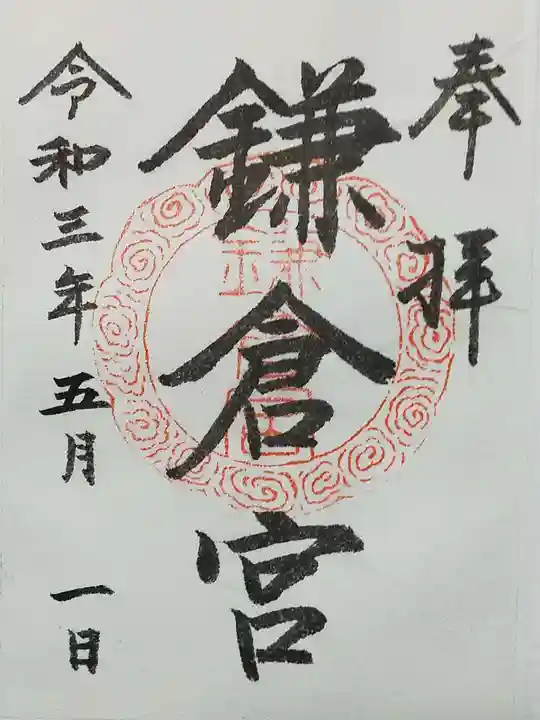 奉拝
鎌倉宮
令和三年五月一日
鎌倉宮